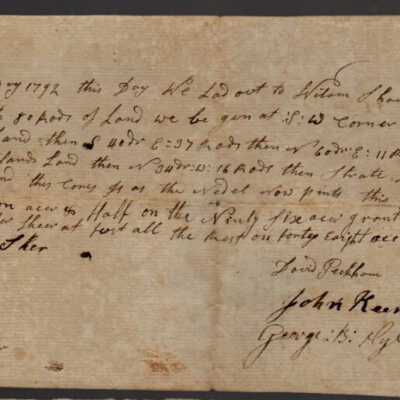 ry 1792 this Day We Lad out to Wilam Sha
80 Rods of Land we be gun at S: W Corner
Land then S 40dr E: 37 Rods then N 60dr: E: 11 R
lands Land then N 34dr: W: 16 Rods then Strate
this Corse is as the Nedel Now pints this
on acer & Half on the Ninty six acer grant
Shear at furst all the Rest on forty Eight ace
David Peckham
John Keen
George: B: Hy